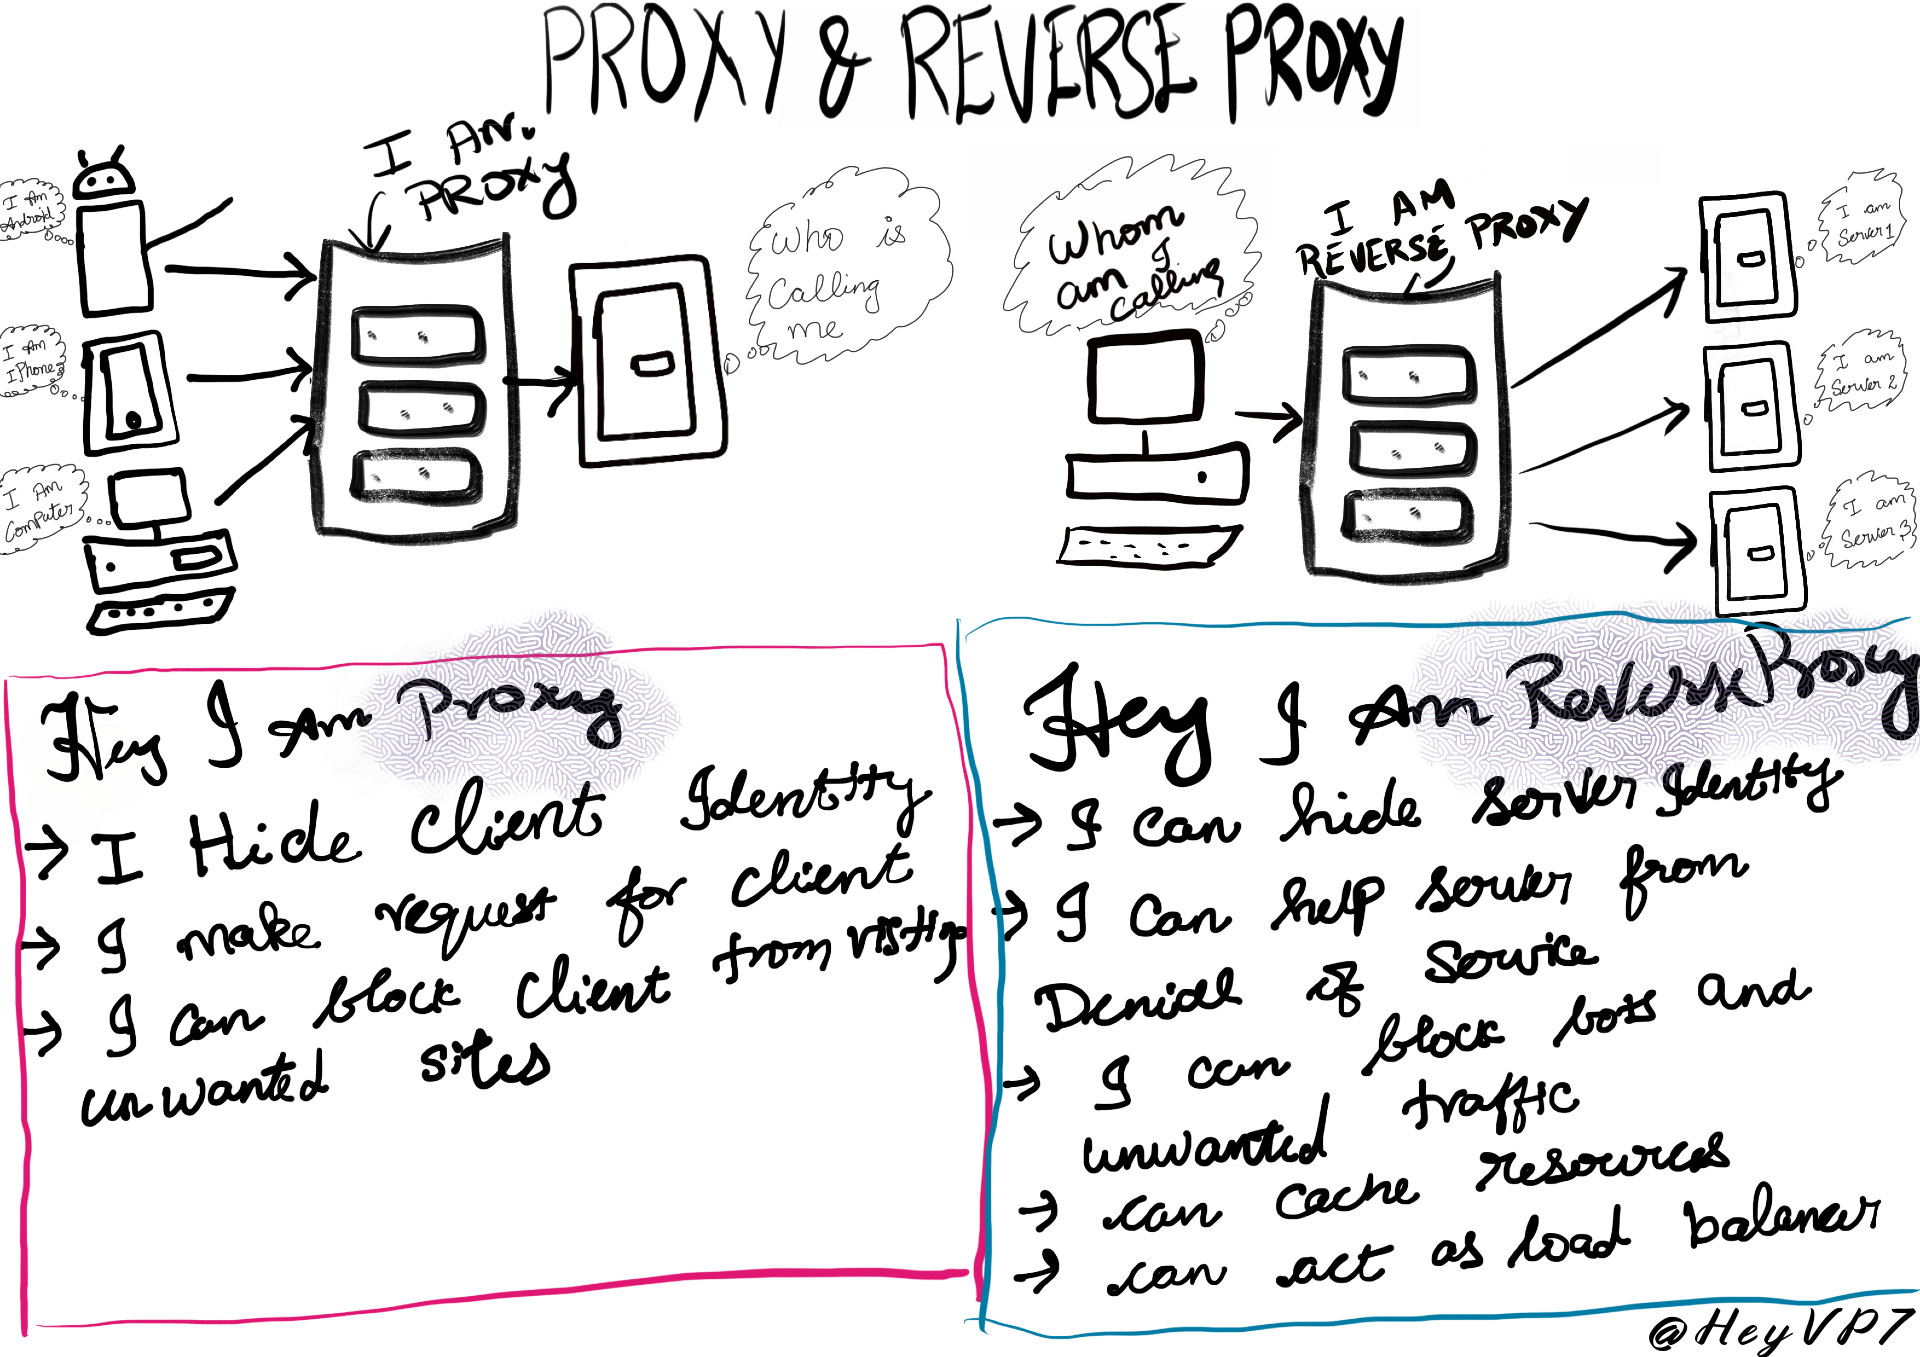 PROXY & REVERSE PROXY
I Am.
PROXY
I Am
Android
I Am
IPhone
I Am
Computer
Who is
Calling
me
Whom
am I
calling
I AM
REVERSE PROXY
I am
Server 1
I am
Server 2
I am
Server 3
Hey I Am Proxy
→ I Hide Client Identity
→ I make request for client
→ I can block client from visting
unwanted sites
Hey I Am Reverse Proxy
→ I can hide server Identity
→ I can help server from
Deniall of Service
→ I can block bots and
unwanted traffic
→ can cache resources
→ can act as load balancer
@HeyVP7